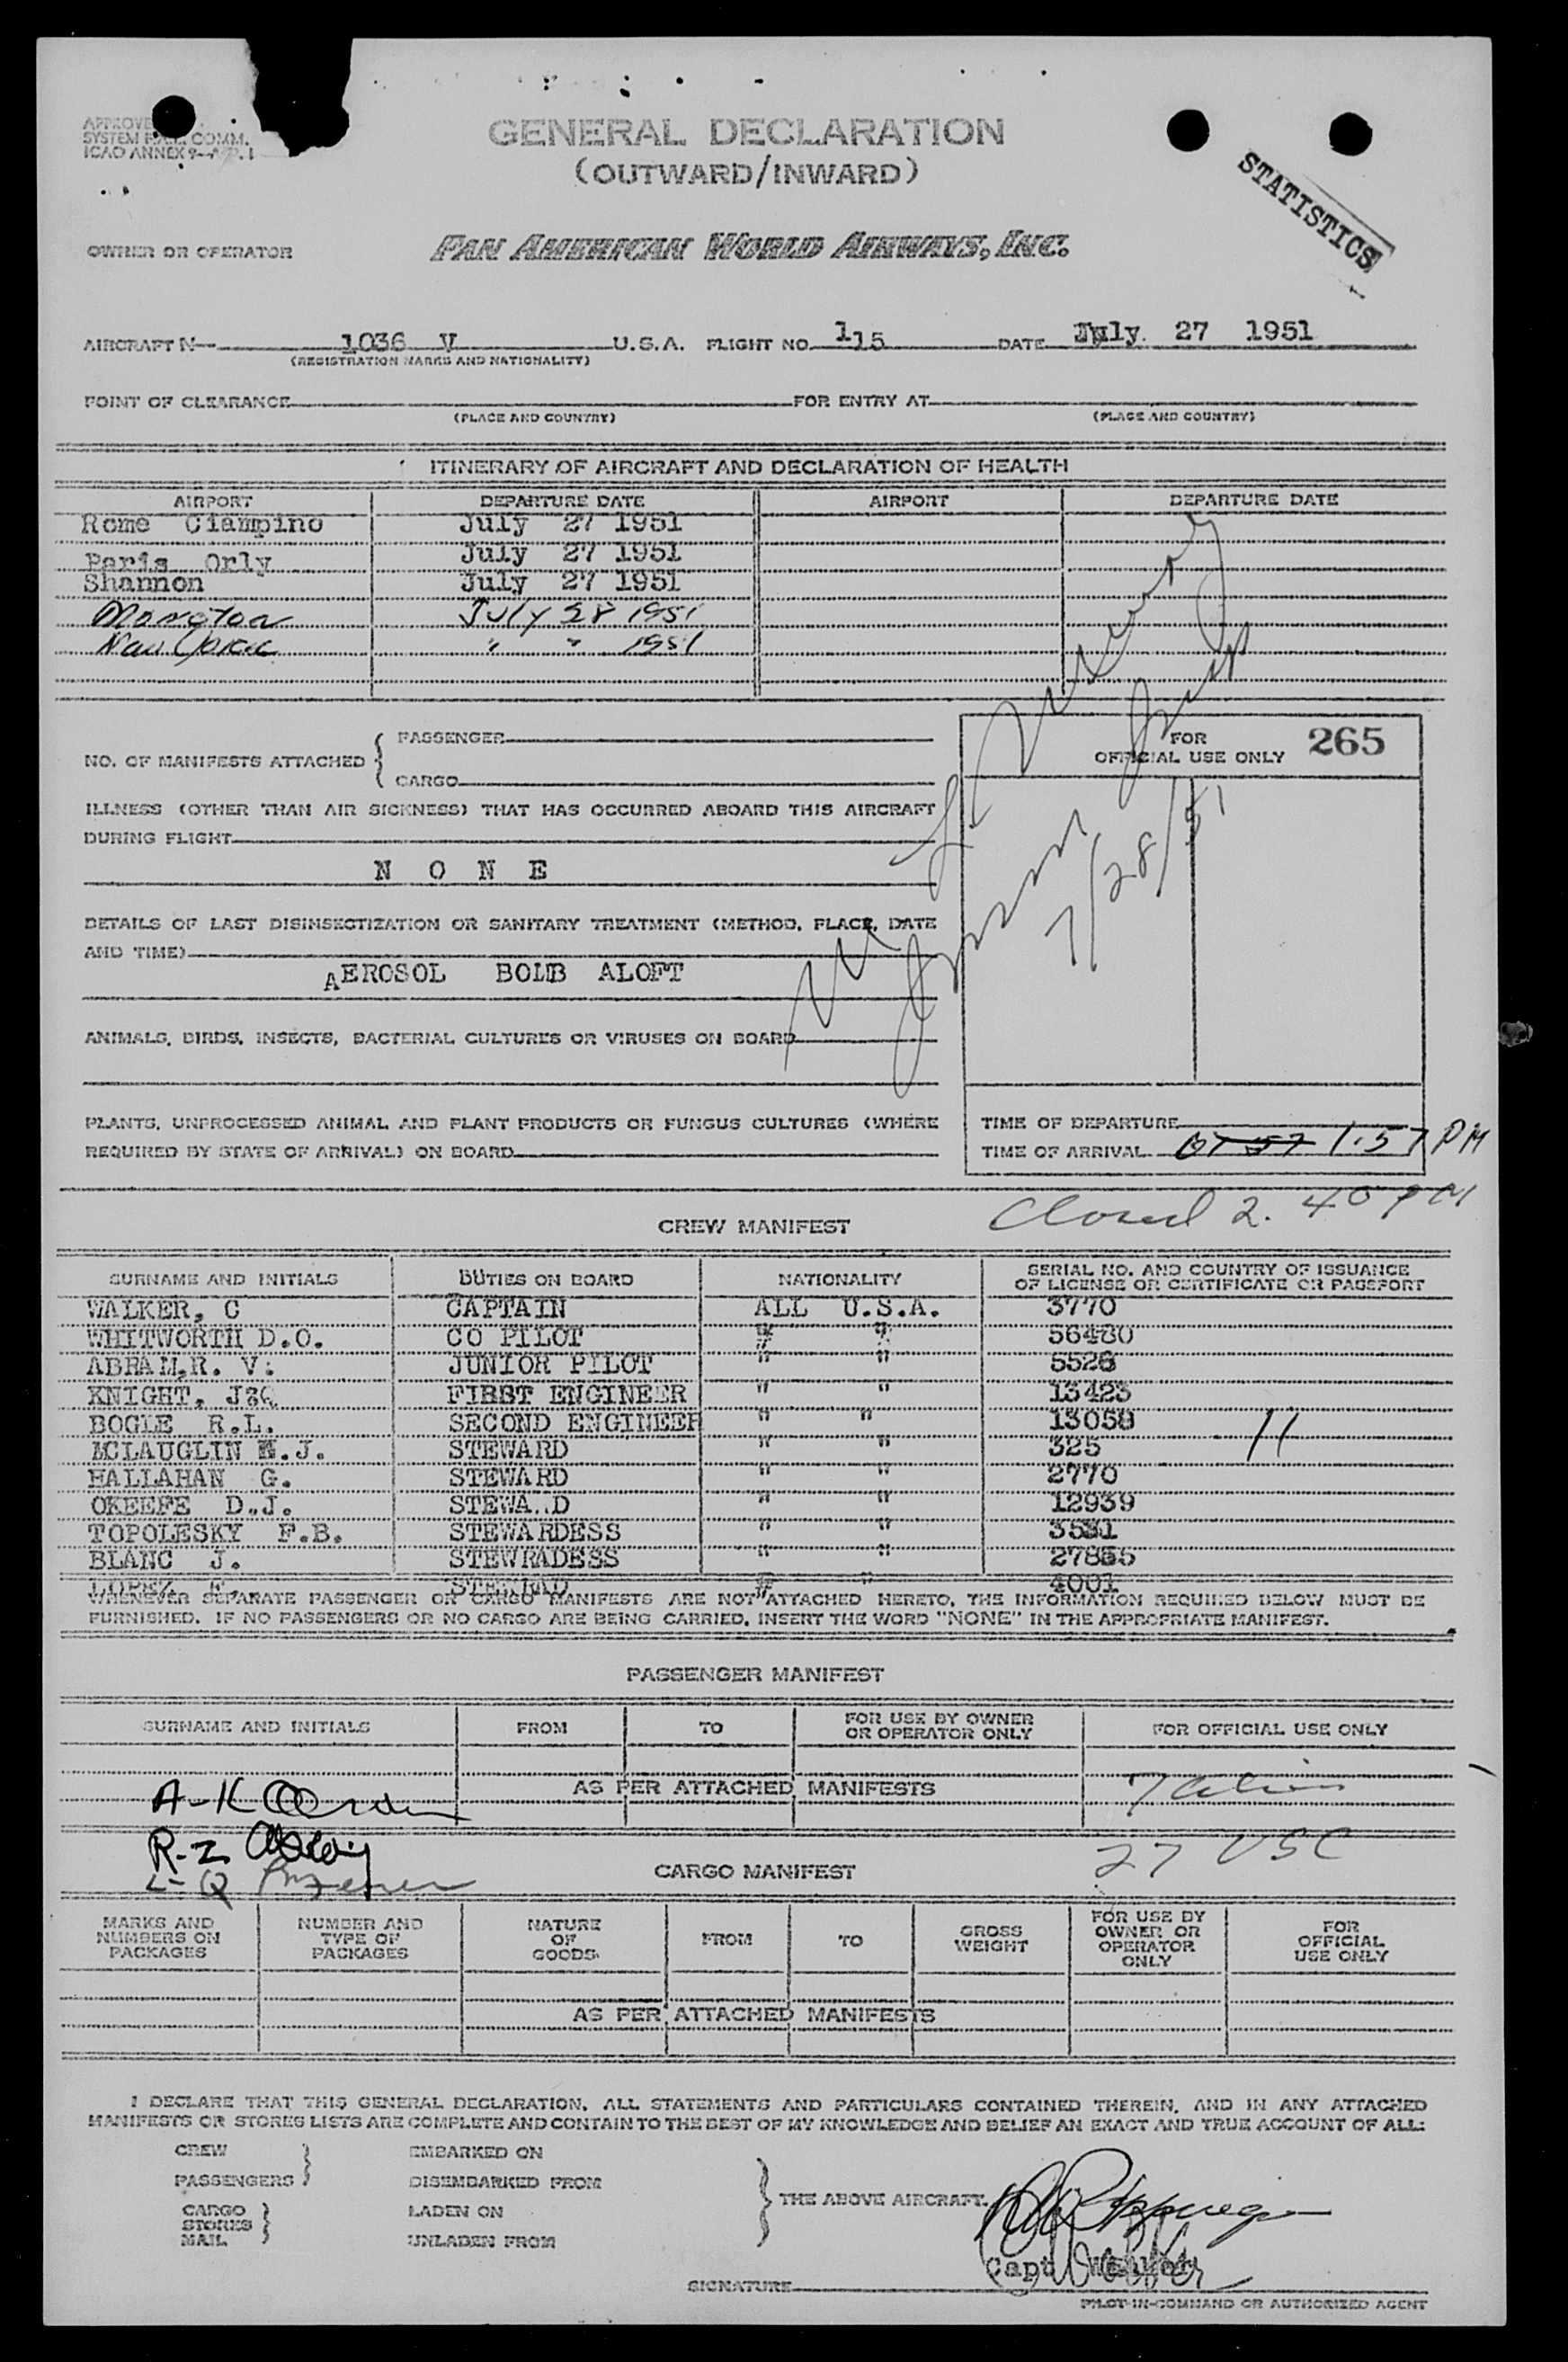 APPROVE
SYSTEM COMM.
ICAO ANNEX 9
GENERAL DECLARATION
(OUTWARD/INWARD)
STATISTICS
OWNER OR OPERATOR PAN AMERICAN WORLD AIRWAYS, INC.
AIRCRAFT N- 1036 V U.S.A. FLIGHT NO. 115 DATE July 27 1951
(REGISTRATION MARKS AND NATIONALITY)
POINT OF CLEARANCE FOR ENTRY AT
(PLACE AND COUNTRY) (PLACE AND COUNTRY)
ITINERARY OF AIRCRAFT AND DECLARATION OF HEALTH
AIRPORT DEPARTURE DATE AIRPORT DEPARTURE DATE
Rome Ciampino July 27 1951
Paris Orly July 27 1951
Shannon July 27 1951
Moncton July 28 1951
New York " " 1951
NO. OF MANIFESTS ATTACHED { PASSENGER
CARGO
FOR
OFFICIAL USE ONLY 265
7/28/51
ILLNESS (OTHER THAN AIR SICKNESS) THAT HAS OCCURRED ABOARD THIS AIRCRAFT
DURING FLIGHT
N O N E
DETAILS OF LAST DISINSECTIZATION OR SANITARY TREATMENT (METHOD, PLACE, DATE
AND TIME)
AEROSOL BOMB ALOFT
ANIMALS, BIRDS, INSECTS, BACTERIAL CULTURES OR VIRUSES ON BOARD
PLANTS, UNPROCESSED ANIMAL AND PLANT PRODUCTS OR FUNGUS CULTURES (WHERE
REQUIRED BY STATE OF ARRIVAL) ON BOARD
TIME OF DEPARTURE
TIME OF ARRIVAL 01 57 1.57 PM
Closed 2.40 PM
CREW MANIFEST
SURNAME AND INITIALS DUTIES ON BOARD NATIONALITY SERIAL NO. AND COUNTRY OF ISSUANCE
OF LICENSE OR CERTIFICATE OR PASSPORT
WALKER, C CAPTAIN ALL U.S.A. 3770
WHITWORTH D.O. CO PILOT " " 56480
ABRAM,R. V. JUNIOR PILOT " " 5526
KNIGHT, J FIRST ENGINEER " " 13423
BOGLE R.L. SECOND ENGINEER " " 13058 11
MCLAUGLIN .J. STEWARD " " 325
HALLAHAN G. STEWARD " " 2770
OKEEFE D.J. STEWA..D " " 12939
TOPOLESKY F.B. STEWARDESS " " 3531
BLANC J. STEWRADESS " " 27855
LOPEZ F. STEWRAD " " 4001
WHENEVER SEPARATE PASSENGER OR CARGO MANIFESTS ARE NOT ATTACHED HERETO, THE INFORMATION REQUIRED BELOW MUST BE
FURNISHED. IF NO PASSENGERS OR NO CARGO ARE BEING CARRIED, INSERT THE WORD "NONE" IN THE APPROPRIATE MANIFEST.
PASSENGER MANIFEST
SURNAME AND INITIALS FROM TO FOR USE BY OWNER
OR OPERATOR ONLY FOR OFFICIAL USE ONLY
AS PER ATTACHED MANIFESTS
A-K
7 aliens
R-Z
27 USC
L-Q
CARGO MANIFEST
MARKS AND
NUMBERS ON
PACKAGES
NUMBER AND
TYPE OF
PACKAGES
NATURE
OF
GOODS
FROM
TO
GROSS
WEIGHT
FOR USE BY
OWNER OR
OPERATOR
ONLY
FOR
OFFICIAL
USE ONLY
AS PER ATTACHED MANIFESTS
I DECLARE THAT THIS GENERAL DECLARATION, ALL STATEMENTS AND PARTICULARS CONTAINED THEREIN, AND IN ANY ATTACHED
MANIFESTS OR STORES LISTS ARE COMPLETE AND CONTAIN TO THE BEST OF MY KNOWLEDGE AND BELIEF AN EXACT AND TRUE ACCOUNT OF ALL:
CREW } EMBARKED ON
PASSENGERS DISEMBARKED FROM
} THE ABOVE AIRCRAFT.
CARGO } LADEN ON
STORES
MAIL UNLADEN FROM
Capt Walker
SIGNATURE
PILOT-IN-COMMAND OR AUTHORIZED AGENT